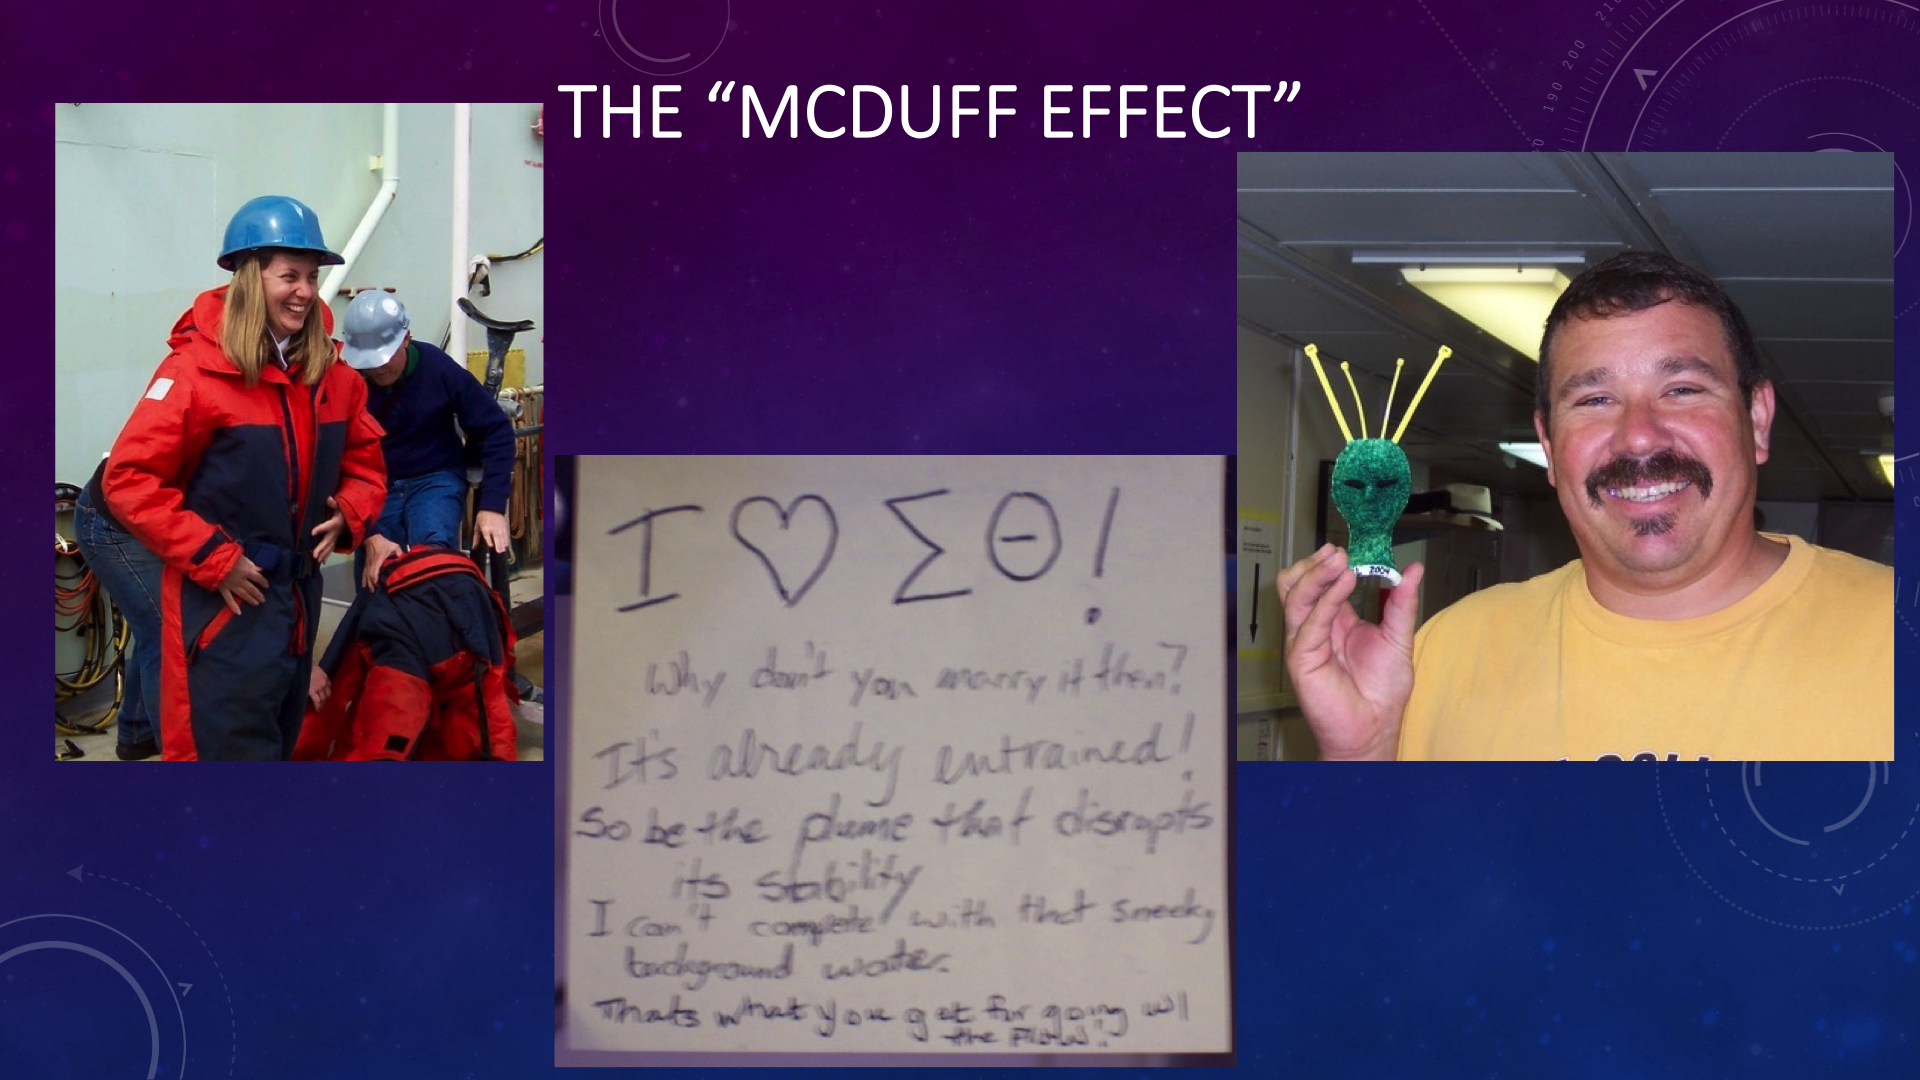 THE “MCDUFF EFFECT”
I ♡ Σ Θ !
Why don't you marry it then?
It's already entrained!
So be the plume that disrupts
its stability
I can't compete with that sneeky
background water.
Thats what you get for going w/
the Flow!!
2004
190 200